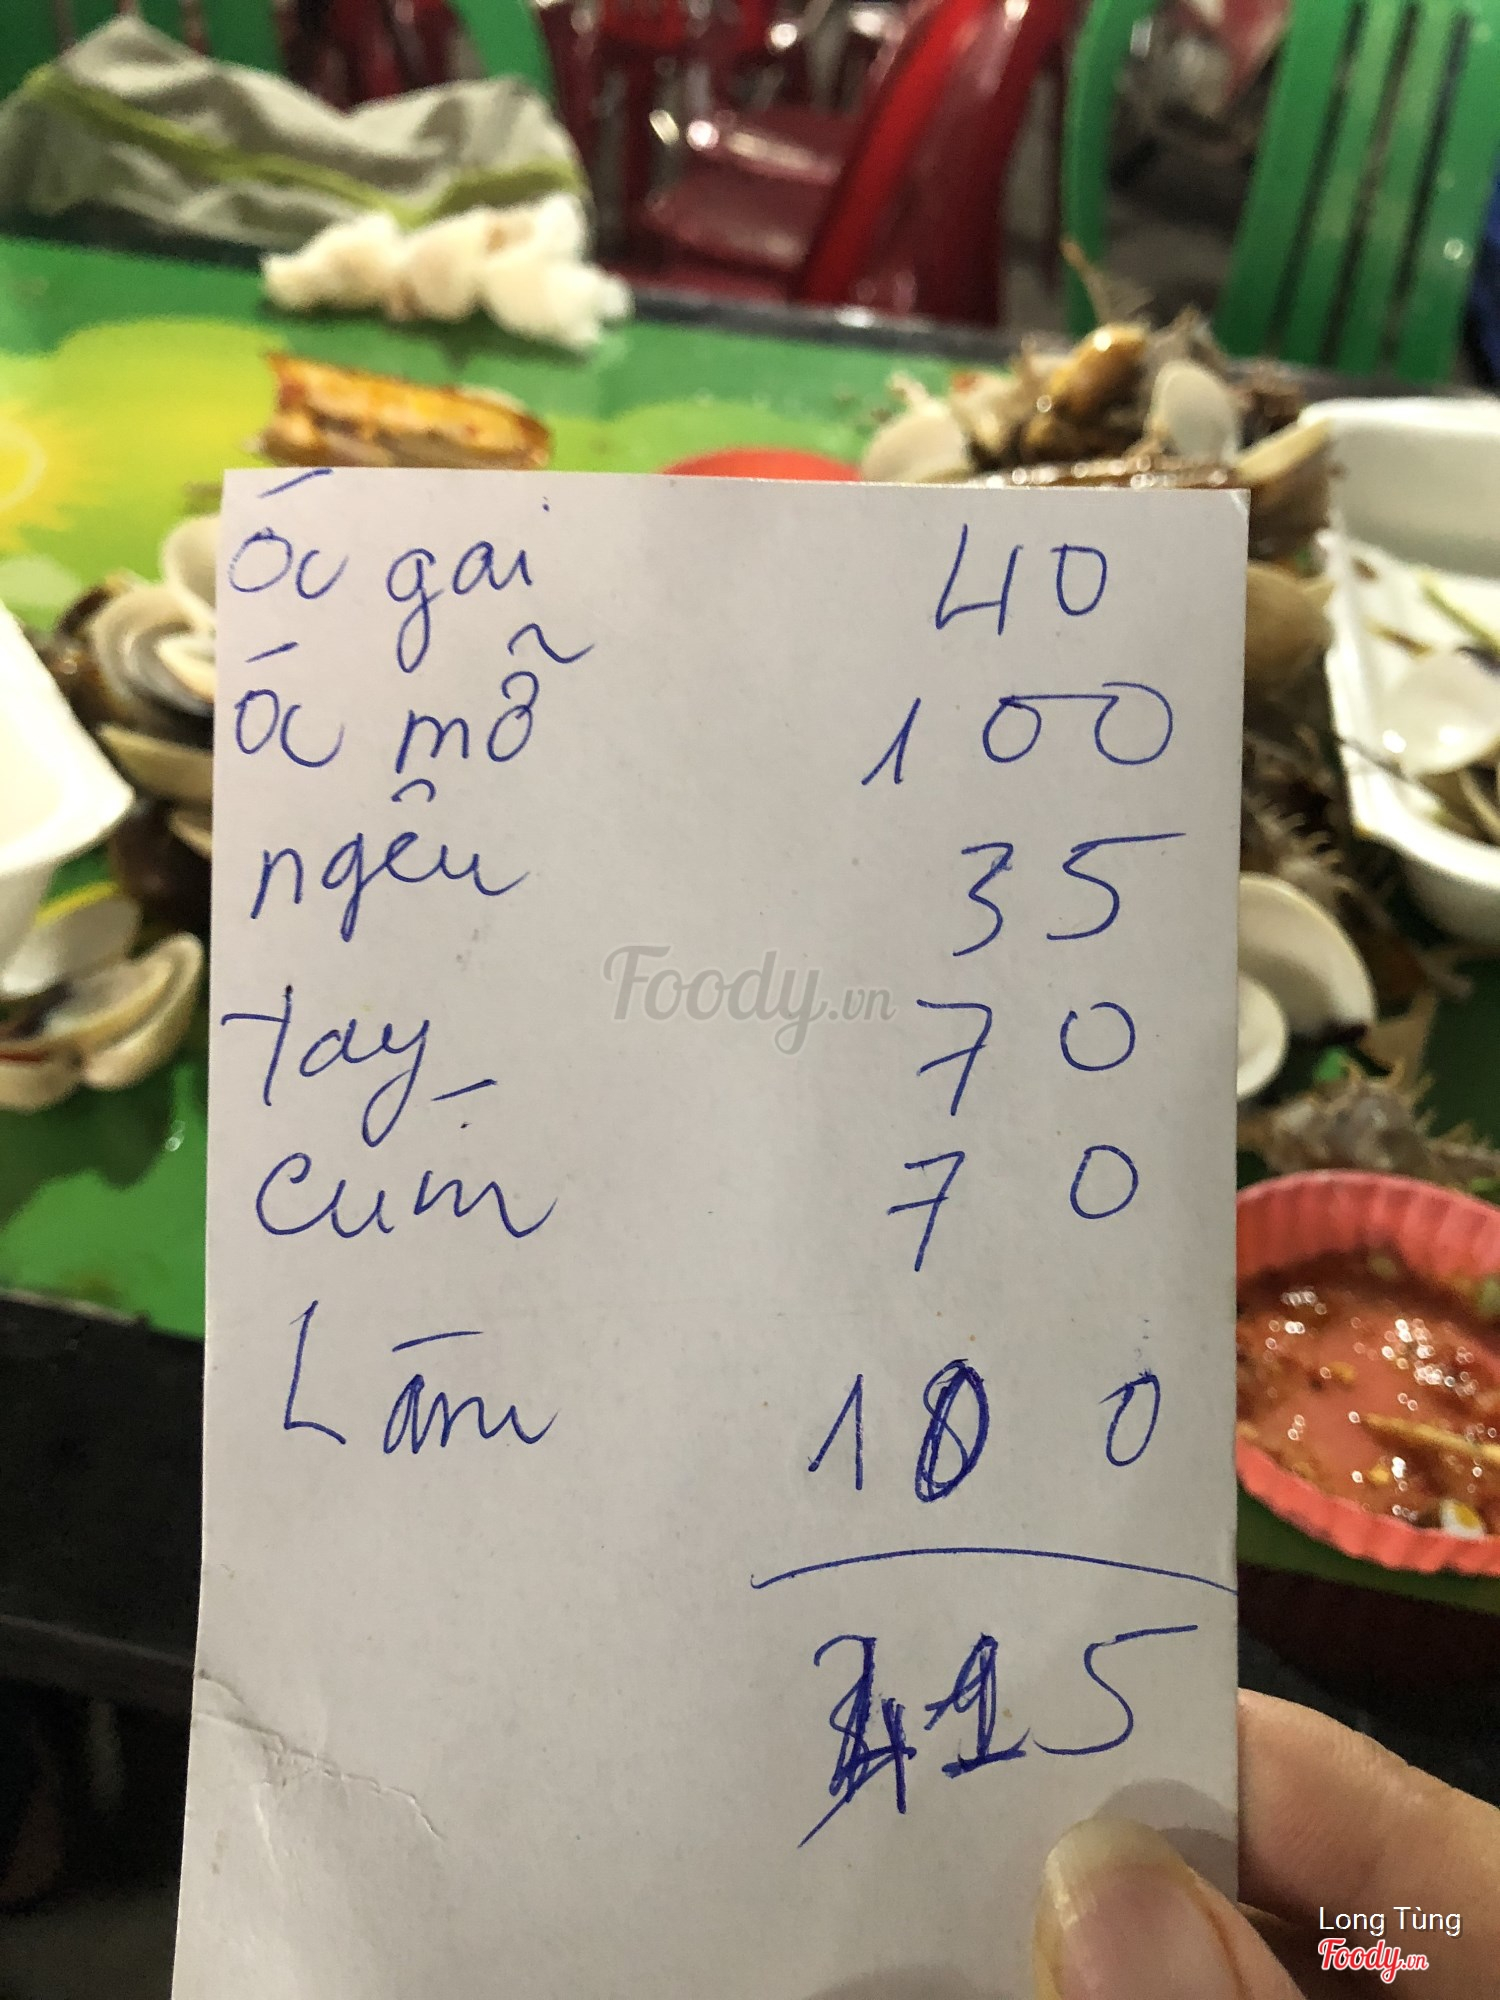 Ốc gai 40
Ốc mỡ 100
ngêu 35
tay 70
cúm 70
Lăm 100
415
Foody.vn
Long Tùng
Foody.vn